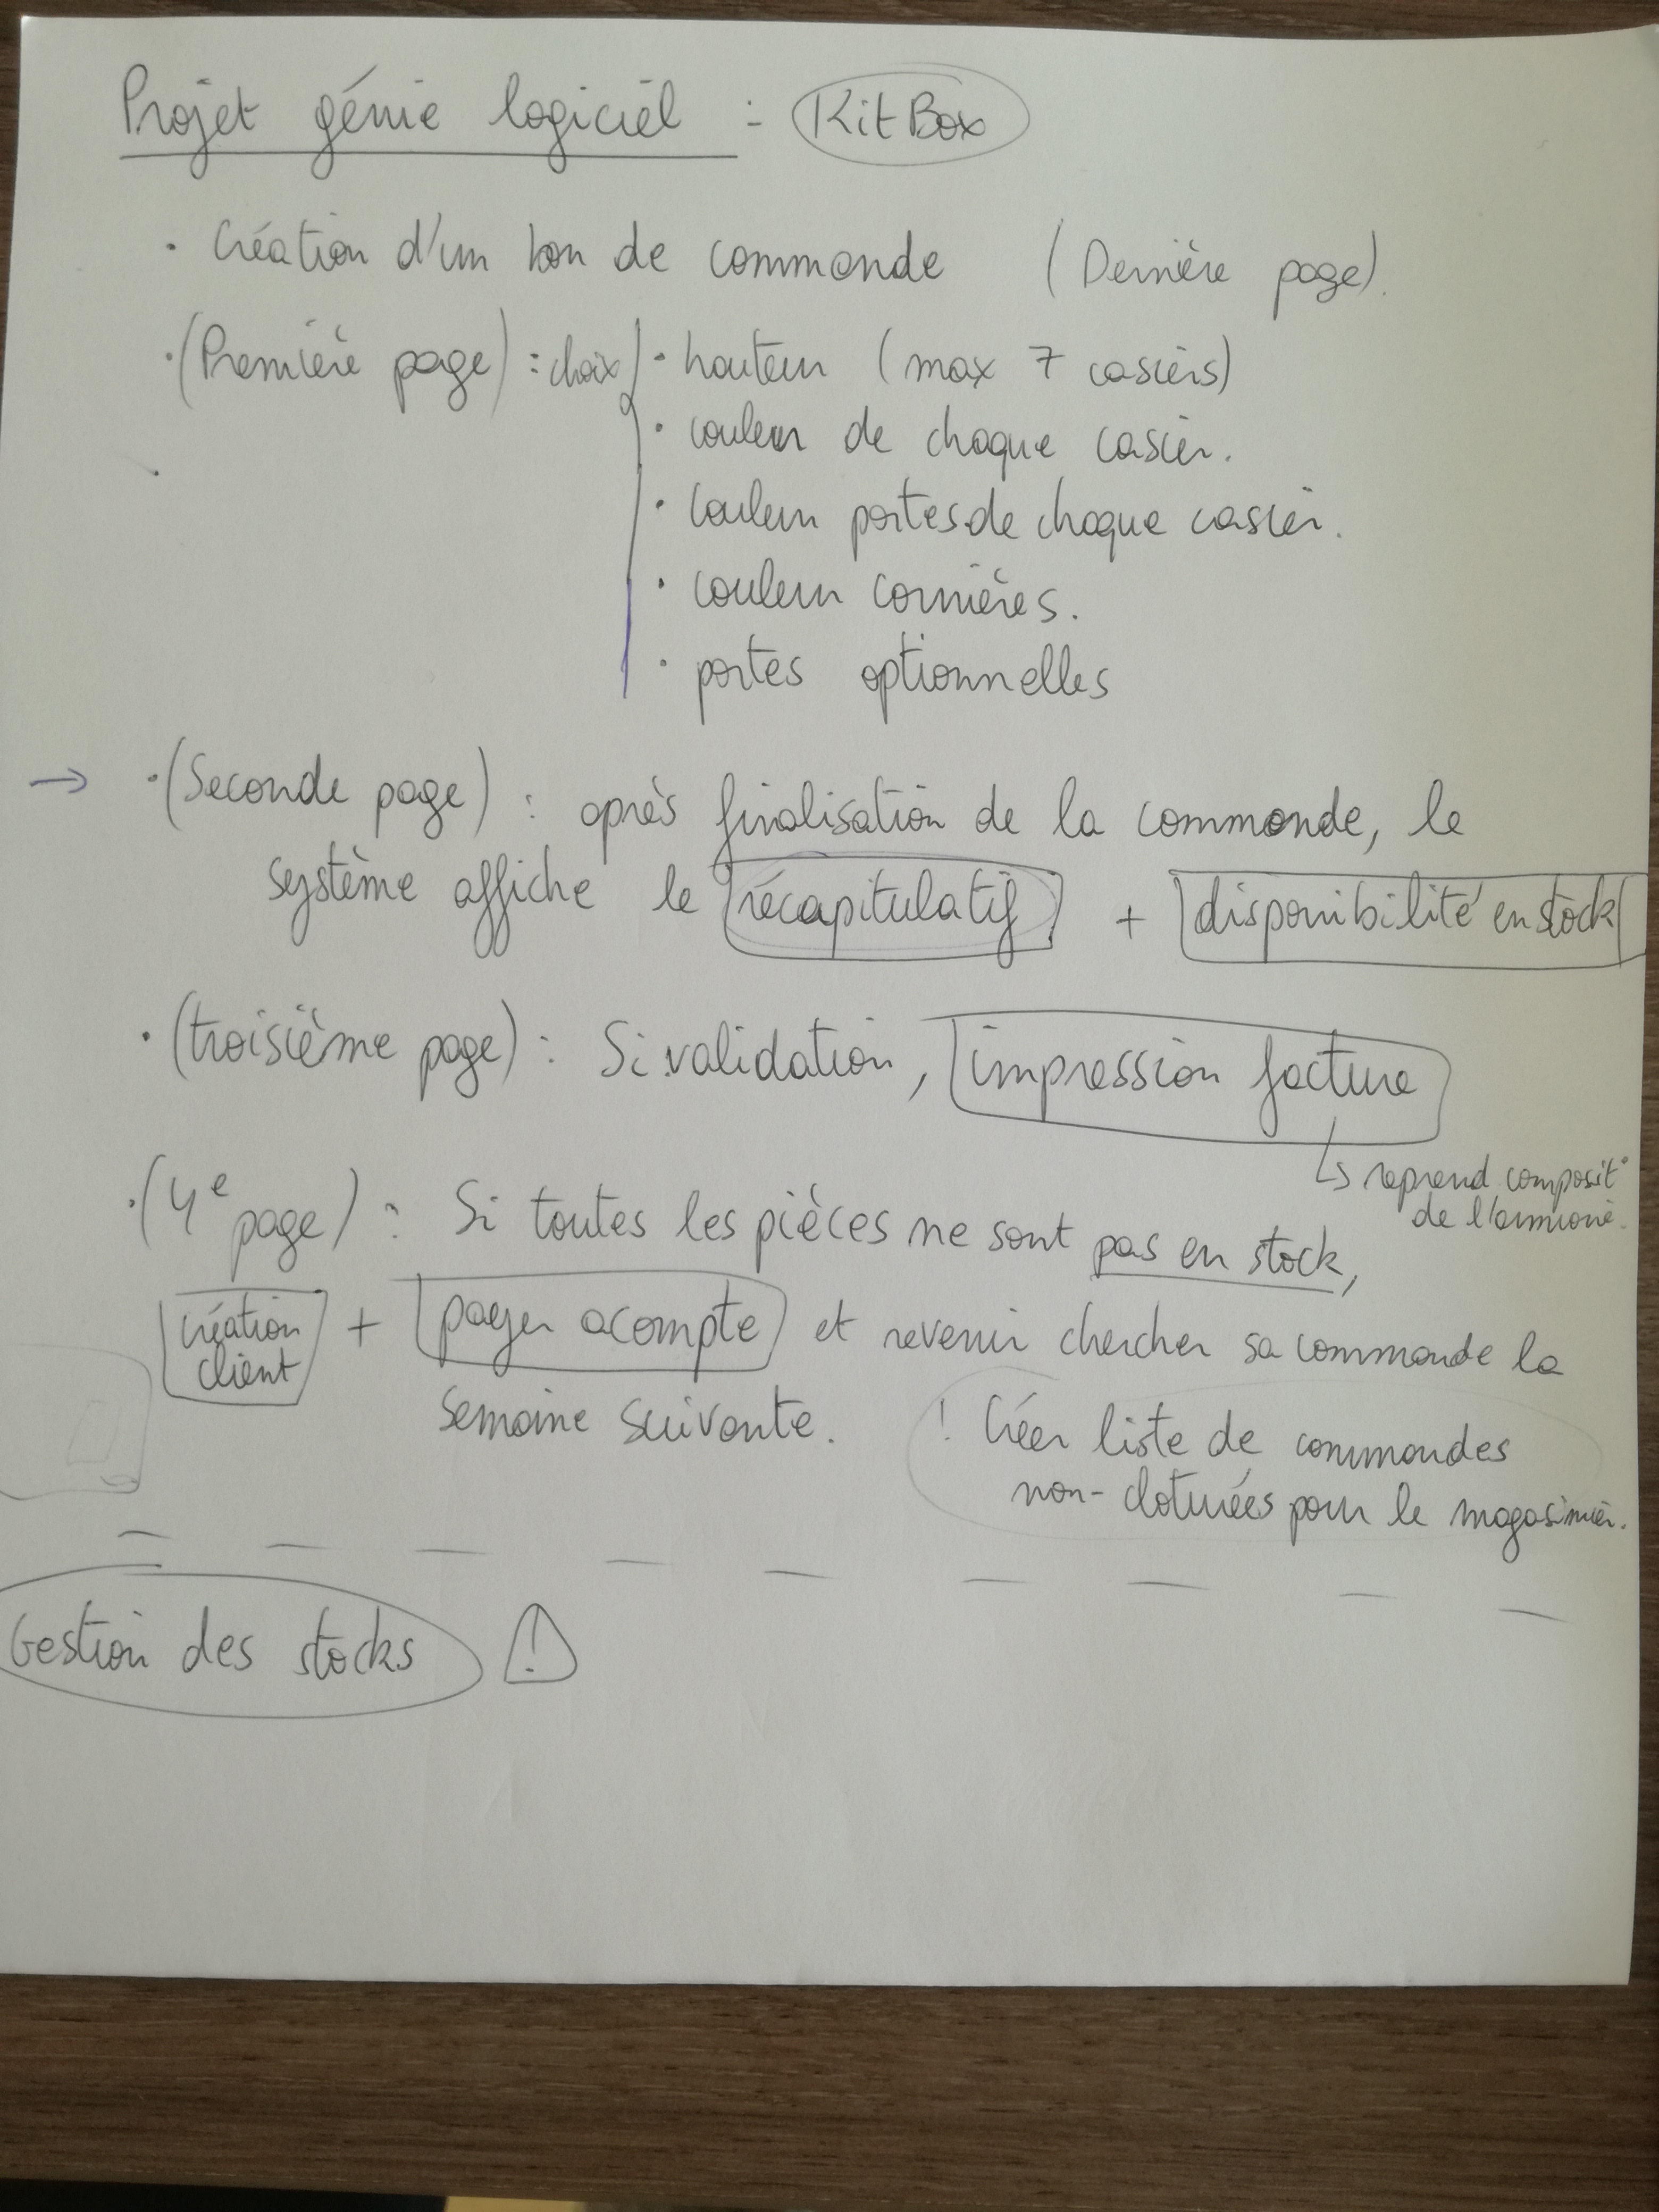 Projet génie logiciel : KitBox
· Création d'un bon de commande (Dernière page).
· (Première page) : choix · hauteur (max 7 casiers)
· couleur de chaque casier.
· couleur portes de chaque casier.
· couleur cornières.
· portes optionnelles
→ · (Seconde page) : après finalisation de la commande, le
système affiche le récapitulatif + disponibilité en stock
· (troisième page) : Si validation, impression facture
↳ reprend composit°
de l'armoire.
· (4e page) : Si toutes les pièces ne sont pas en stock,
création client + payer acompte et revenir chercher sa commande la
semaine suivante.
! Créer liste de commandes
non-cloturées pour le magasinier.
Gestion des stocks !